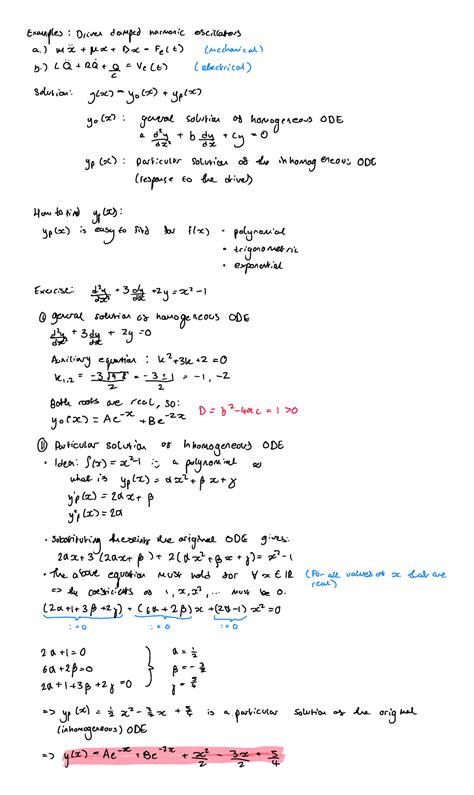 Examples: Driven damped harmonic oscillators
a.) mẍ + μẋ + Dx = Fe(t) (mechanical)
b.) LQ̈ + RQ̇ + Q/C = Ve(t) (electrical)
Solution: y(x) = y₀(x) + yp(x)
y₀(x): general solution of homogeneous ODE
a d²y/dx² + b dy/dx + cy = 0
yp(x): particular solution of the inhomogeneous ODE
(response to the drive)
How to find yp(x):
yp(x) is easy to find for f(x) • polynomial
• trigonometric
• exponential
Exercise: d²y/dx² + 3 dy/dx + 2y = x² - 1
① general solution of homogeneous ODE
d²y/dx² + 3 dy/dx + 2y = 0
Auxiliary equation: k² + 3k + 2 = 0
k₁,₂ = (-3 ± √9-8)/2 = (-3 ± 1)/2 = -1, -2
Both roots are real, so: D = b² - 4ac = 1 > 0
y₀(x) = Ae⁻ˣ + Be⁻²ˣ
② Particular solution of Inhomogeneous ODE
• Idea: f(x) = x² - 1 is a polynomial so
what is yp(x) = αx² + βx + γ
y'p(x) = 2αx + β
y''p(x) = 2α
• Substituting the original ODE gives:
2αx + 3(2αx + β) + 2(αx² + βx + γ) = x² - 1
• The above equation must hold for ∀x ∈ ℝ (For all values of x that are real)
=> the coefficients of 1, x, x², ... must be 0.
(2α + 1 + 3β + 2γ) + (6α + 2β)x + (2α - 1)x² = 0
:=0 :=0 :=0
2α + 1 = 0 α = 1/2
6α + 2β = 0 β = -3/2
2α + 1 + 3β + 2γ = 0 γ = 5/4
=> yp(x) = 1/2 x² - 3/2 x + 5/4 is a particular solution of the original
(inhomogeneous) ODE
=> y(x) = Ae⁻ˣ + Be⁻²ˣ + x²/2 - 3x/2 + 5/4